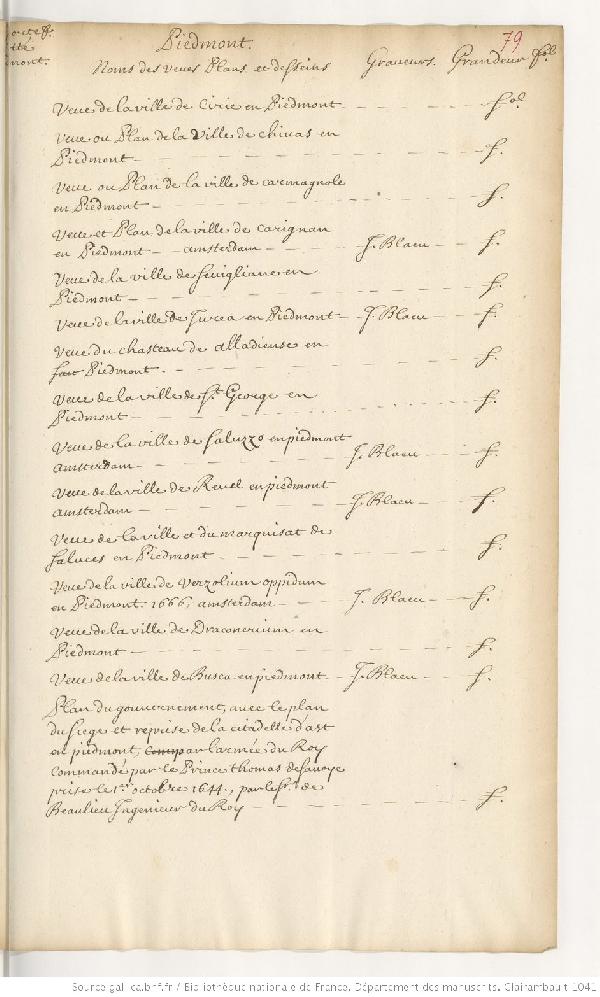 79
Piedmont.
Noms des veues Plans et desseins Graveurs. Grandeur fol
Veue de la ville de Cirie en Piedmont fol.
Veue ou Plan de la Ville de chivas en
Piedmont f.
Veue ou Plan de la ville de carmagnole
en Piedmont f.
Veue et Plan de la ville de carignan
en Piedmont amsterdam J. Blaeu f.
Veue de la ville de Sevigliane en
Piedmont f.
Veue de la ville de Jurea en Piedmont J. Blaeu f.
Veue du chasteau de en
Piedmont. f.
Veue de la ville de St. George en
Piedmont f.
Veue de la ville de Saluzzo en piedmont
amsterdam J. Blaeu f.
Veue de la ville de Revel en piedmont
amsterdam J. Blaeu f.
Veue de la ville et du marquisat de
Saluces en Piedmont f.
Veue de la ville de Verzolium oppidum
en Piedmont. 1666, amsterdam J. Blaeu f.
Veue de la ville de Draconerium en
Piedmont f.
Veue de la ville de Busca en piedmont J. Blaeu f.
Plan du gouvernement, avec le plan
du siege et reprise de la citadelle d'ast
en piedmont, par l'armée du Roy
commandée par le Prince thomas de Savoye
prise le 1er octobre 1644., par le Sr. de
Beaulieu Ingenieur du Roy f.
Source gallica.bnf.fr / Bibliothèque nationale de France. Département des manuscrits. Clairambault 1041